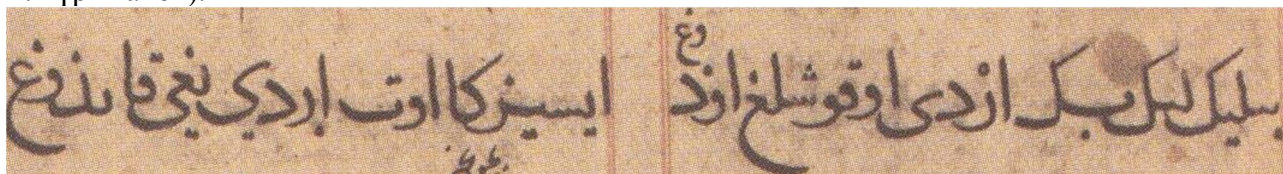 بيليك ليك بك اردى اوقوشلغ اوذوغ ايسيز كا اوت اردي يغي قا يذوغ